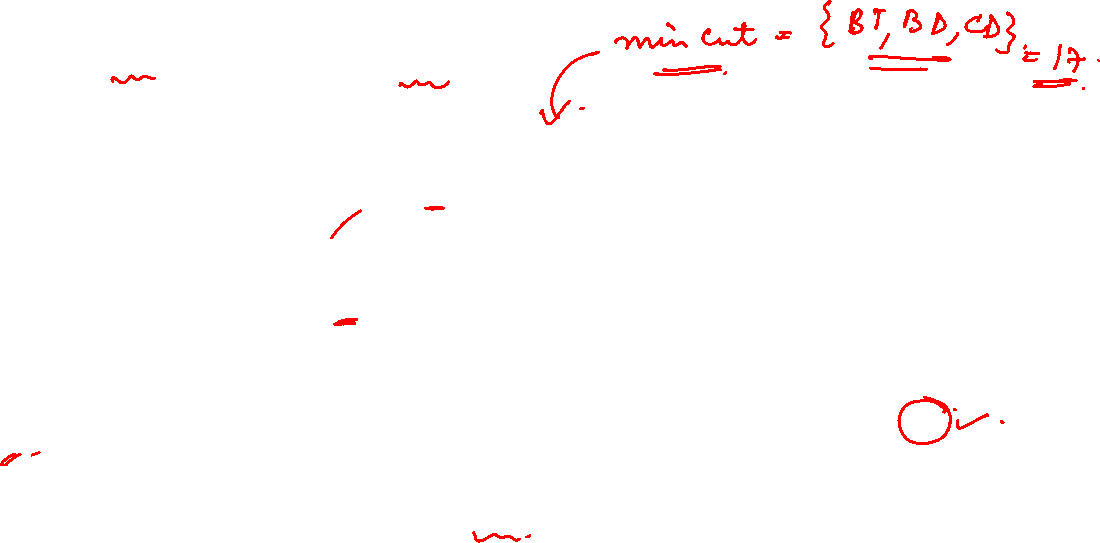 min cut = {BT, BD, CD} = 17.